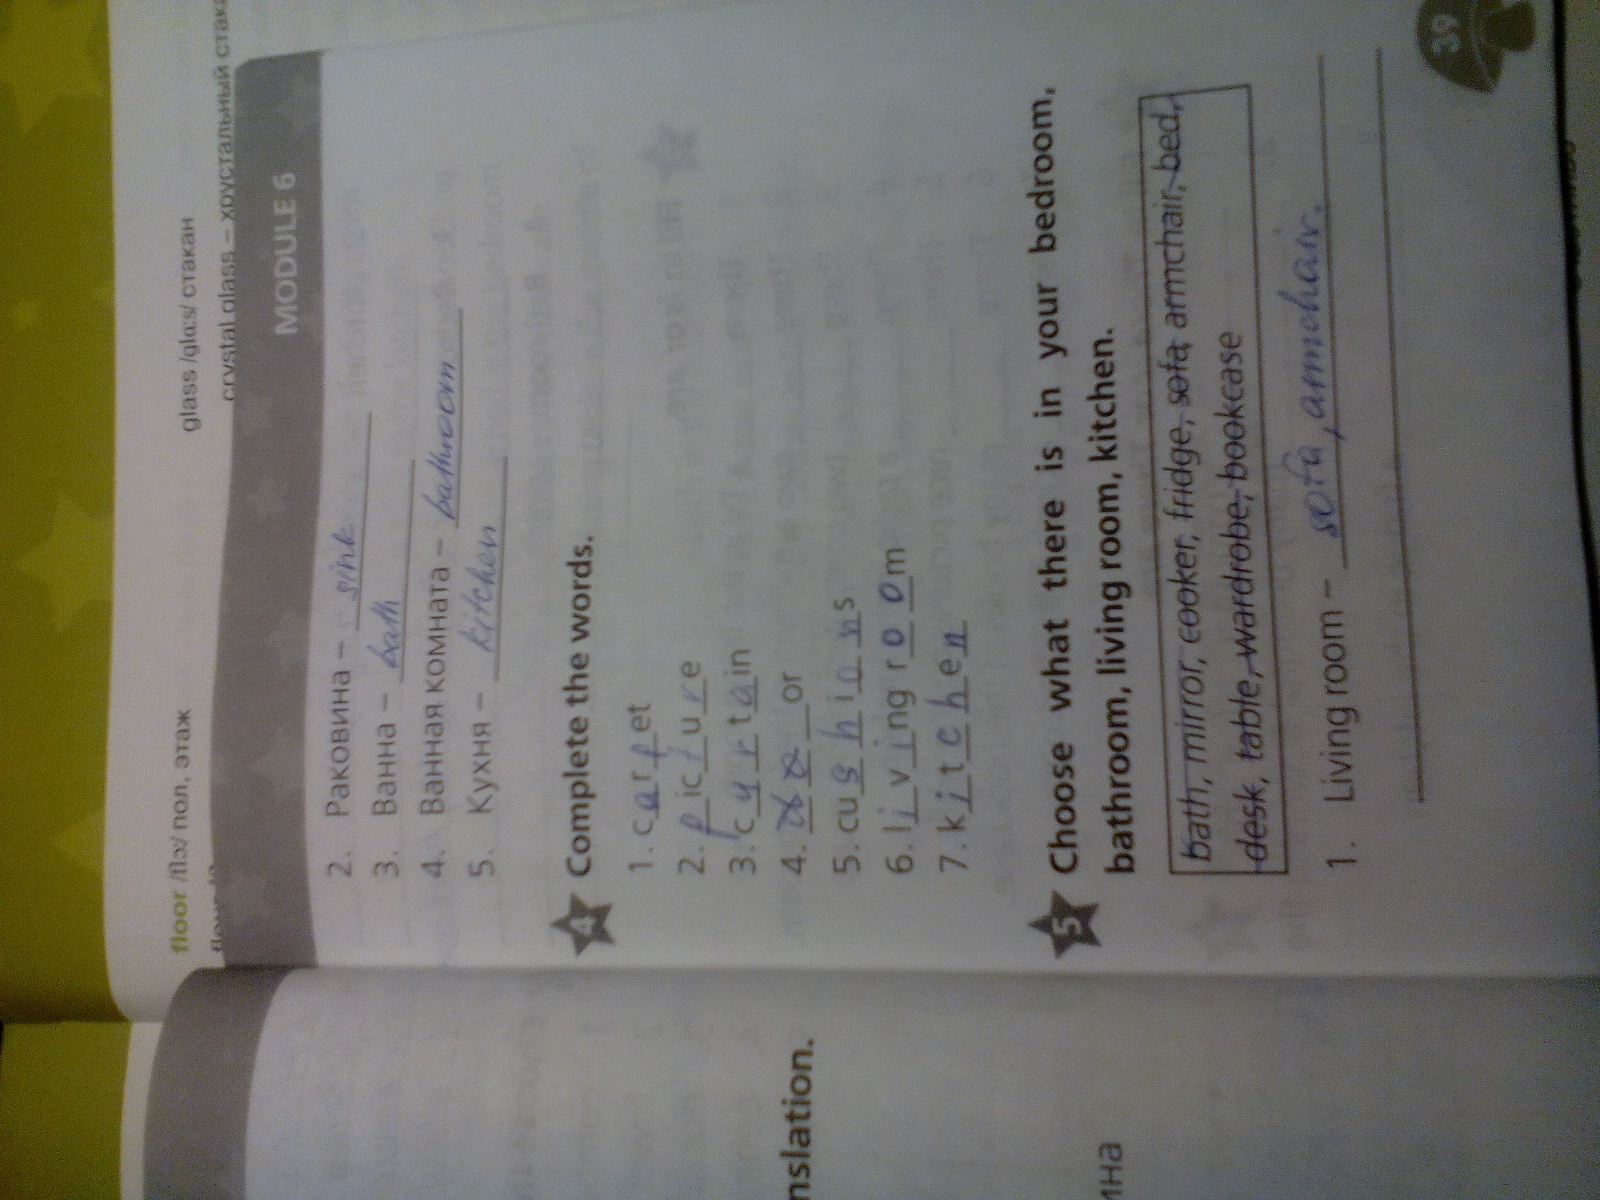 floor /flɔ:/ пол, этаж
glass /glɑ:s/ стакан
crystal glass – хрустальный
MODULE 6
2. Раковина – sink
3. Ванна – bath
4. Ванная комната – bathroom
5. Кухня – kitchen
4 Complete the words.
1. carpet
2. picture
3. curtain
4. _ _ _or
5. cushions
6. living room
7. kitchen
5 Choose what there is in your bedroom,
bathroom, living room, kitchen.
bath, mirror, cooker, fridge, sofa, armchair, bed,
desk, table, wardrobe, bookcase
1. Living room – sofa, armchair.
39
nslation.